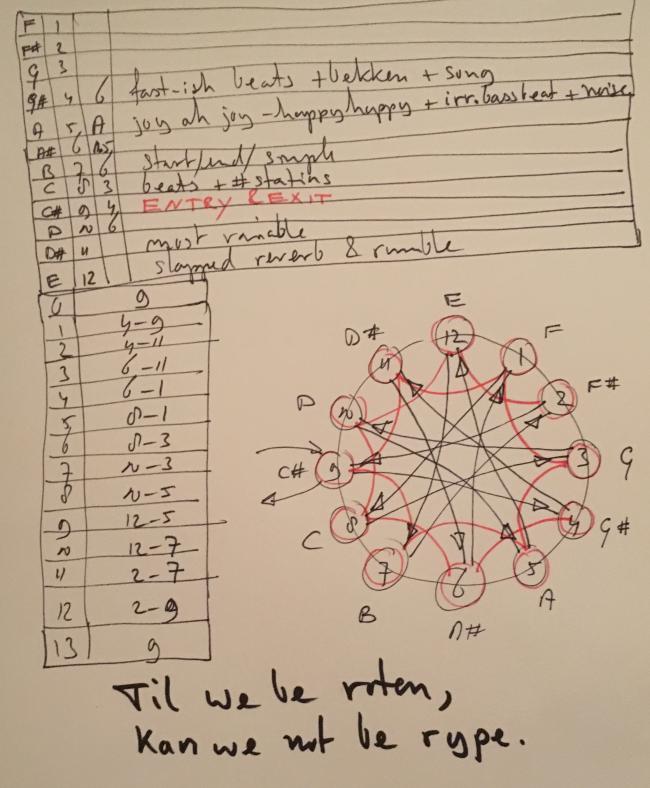 F 1
F# 2
G 3
G# 4 6 fast-ish beats + bekken + song
A 5 A joy ah joy - happyhappy + irr. bassbeat + noise
A# 6
B 7 6 start/end/simple
C 8 3 beats + # statins
C# 9 4 ENTRY & EXIT
D 10 6
D# 11 most variable
E 12 slapped reverb & rumble
0 9
1 4-9
2 4-11
3 6-11
4 6-1
5 8-1
6 8-3
7 10-3
8 10-5
9 12-5
10 12-7
11 2-7
12 2-9
13 9
E
D# 12 F
11 1
D F#
10 2
C# 9 3 G
8 4 G#
C 7 6 5
B A# A
Til we be roten,
Kan we not be rype.